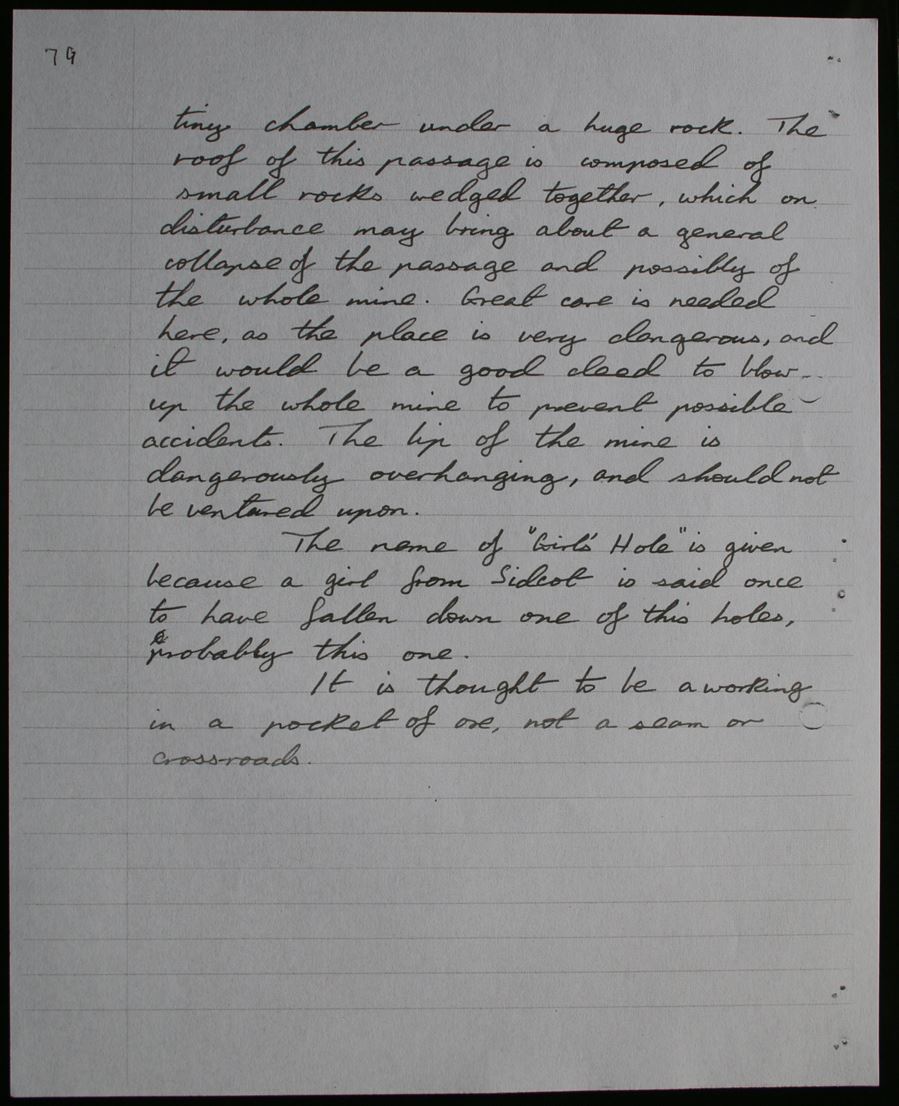 79
tiny chamber under a huge rock. The
roof of this passage is composed of
small rocks wedged together, which on
disturbance may bring about a general
collapse of the passage and possibly of
the whole mine. Great care is needed
here, as the place is very dangerous, and
it would be a good deed to blow
up the whole mine to prevent possible
accidents. The lip of the mine is
dangerously overhanging, and should not
be ventured upon.
The name of "Girls' Hole" is given
because a girl from Sidcot is said once
to have fallen down one of this holes,
probably this one.
It is thought to be a working
in a pocket of ore, not a seam or
crossroads.